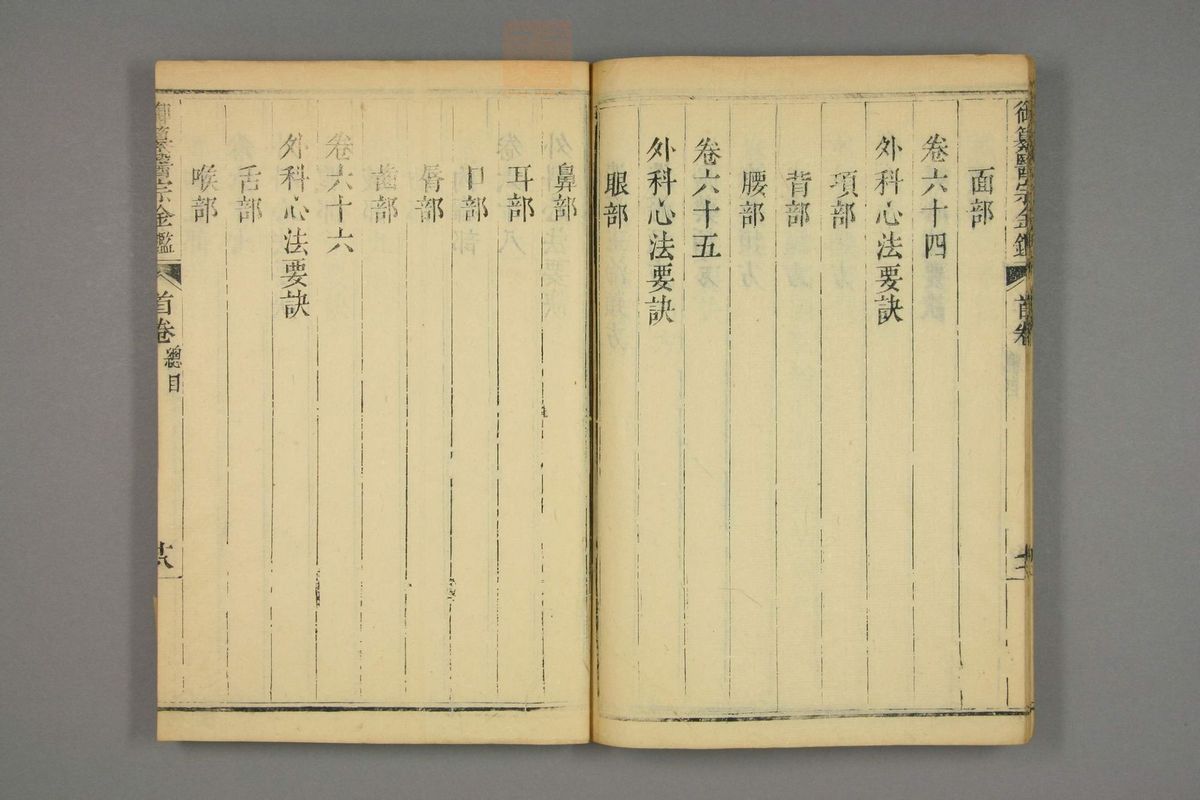 御纂醫宗金鑑
首卷
面部
卷六十四
外科心法要訣
項部
背部
腰部
卷六十五
外科心法要訣
眼部
鼻部
耳部
口部
唇部
齒部
卷六十六
外科心法要訣
舌部
喉部
御纂醫宗金鑑
首卷
總目